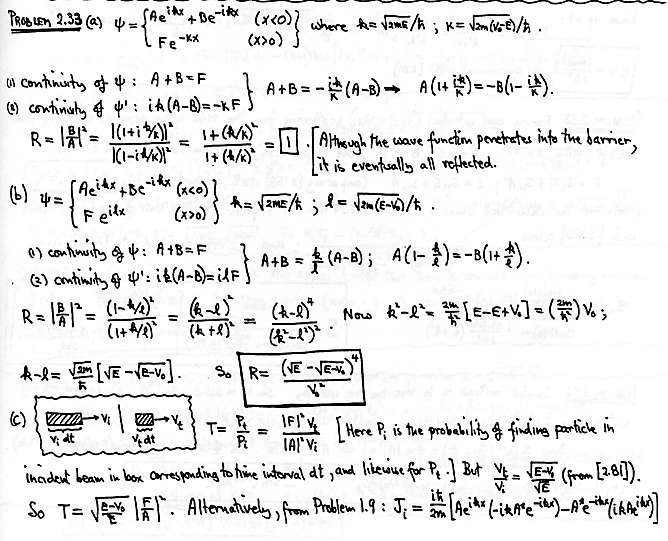 PROBLEM 2.33 (a) ψ = { Ae^{ikx} + Be^{-ikx} (x<0) ; Fe^{-κx} (x>0) } where k = √(2mE)/ħ ; κ = √(2m(V₀-E))/ħ .
(1) continuity of ψ : A+B = F
(2) continuity of ψ' : ik(A-B) = -κF } A+B = -(ik/κ)(A-B) → A(1+ ik/κ) = -B(1- ik/κ).
R = |B/A|² = |(1+ik/κ)|²/|(1-ik/κ)|² = (1+(k/κ)²)/(1+(k/κ)²) = 1 . [Although the wave function penetrates into the barrier, it is eventually all reflected.
(b) ψ = { Ae^{ikx} + Be^{-ikx} (x<0) ; F e^{ilx} (x>0) } k = √(2mE)/ħ ; l = √(2m(E-V₀))/ħ .
(1) continuity of ψ : A+B = F
(2) continuity of ψ' : ik(A-B) = ilF } A+B = (k/l)(A-B) ; A(1- k/l) = -B(1+ k/l).
R = |B/A|² = (1-k/l)²/(1+k/l)² = (k-l)²/(k+l)² = (k-l)⁴/(k²-l²)² . Now k²-l² = (2m/ħ²)[E-E+V₀] = (2m/ħ²)V₀ ;
k-l = (√2m/ħ)[√E - √(E-V₀)]. So R = (√E - √(E-V₀))⁴/V₀²
(c) vᵢ dt → vᵢ | vₜ dt → vₜ T = Pₜ/Pᵢ = |F|²vₜ/|A|²vᵢ [Here Pᵢ is the probability of finding particle in
incident beam in box corresponding to time interval dt, and likewise for Pₜ.] But vₜ/vᵢ = √(E-V₀)/√E (from [2.81]).
So T = √((E-V₀)/E) |F/A|² . Alternatively, from Problem 1.9 : Jᵢ = (iħ/2m)[Ae^{ikx}(-ikA*e^{-ikx}) - A*e^{-ikx}(ikAe^{ikx})]